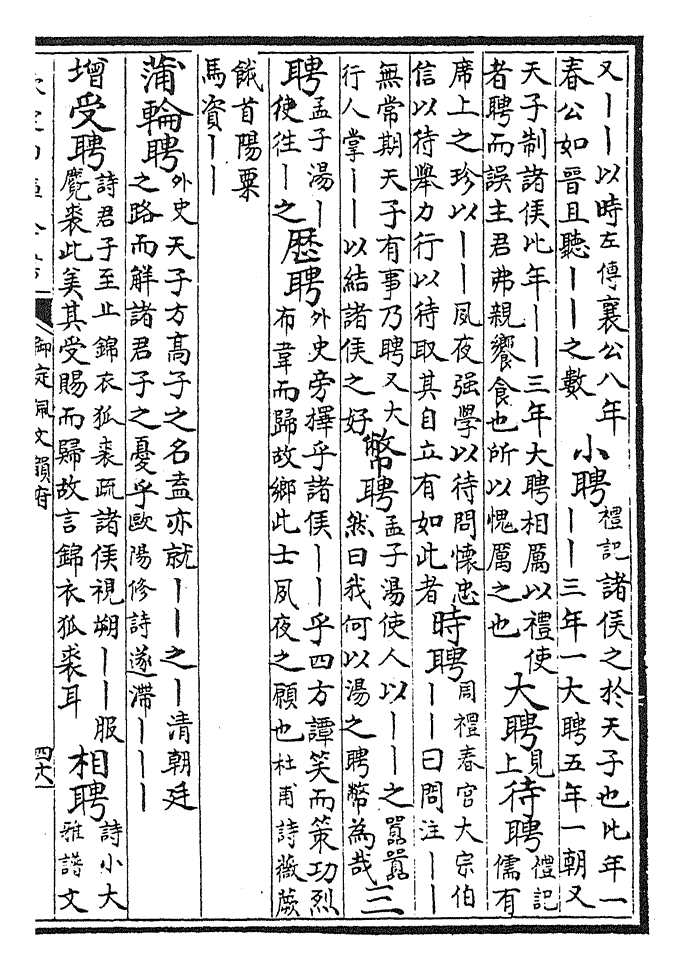 又丨丨以時左傳襄公八年
春公如晉且聽丨丨之數
小聘
禮記諸侯之於天子也比年一
丨丨三年一大聘五年一朝又
天子制諸侯比年丨丨三年大聘相厲以禮使
者聘而誤主君弗親饗食也所以愧厲之也
大聘
見
上
待聘
禮記
儒有
席上之珍以丨丨夙夜强學以待問懷忠
信以待舉力行以待取其自立有如此者
時聘
周禮春官大宗伯
丨丨曰問注丨丨
無常期天子有事乃聘又大
行人掌丨丨以結諸侯之好
幣聘
孟子湯使人以丨丨之囂囂
然曰我何以湯之聘幣為哉
三
聘
孟子湯丨
使往丨之
歷聘
外史旁擇乎諸侯丨丨乎四方譚笑而策功烈
布韋而歸故鄉此士夙夜之願也杜甫詩薇蕨
餓首陽粟
馬資丨丨
蒲輪聘
外史天子方高子之名盍亦就丨丨之丨清朝廷
之路而解諸君子之憂乎歐陽修詩遂滯丨丨丨
增受聘
詩君子至止錦衣狐裘疏諸侯視朔丨丨服
麑裘此美其受賜而歸故言錦衣狐裘耳
相聘
詩小大
雅譜文
御定佩文韻府